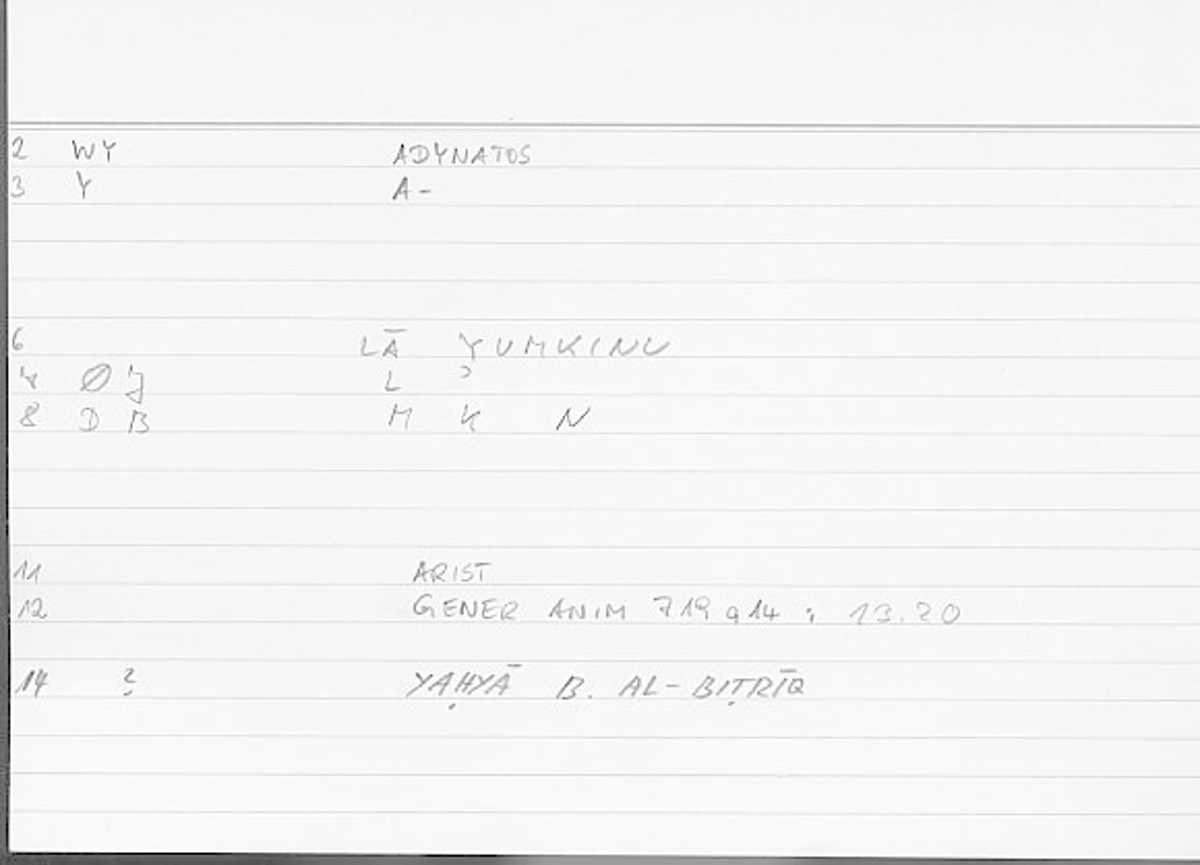 2 WY ADYNATOS
3 Y A-
6 LĀ YUMKINU
4 Ø J L ʾ
8 D B M K N
11 ARIST
12 GENER ANIM 719 a 14 ; 13.20
14 ? YAḤYĀ B. AL-BIṬRĪQ